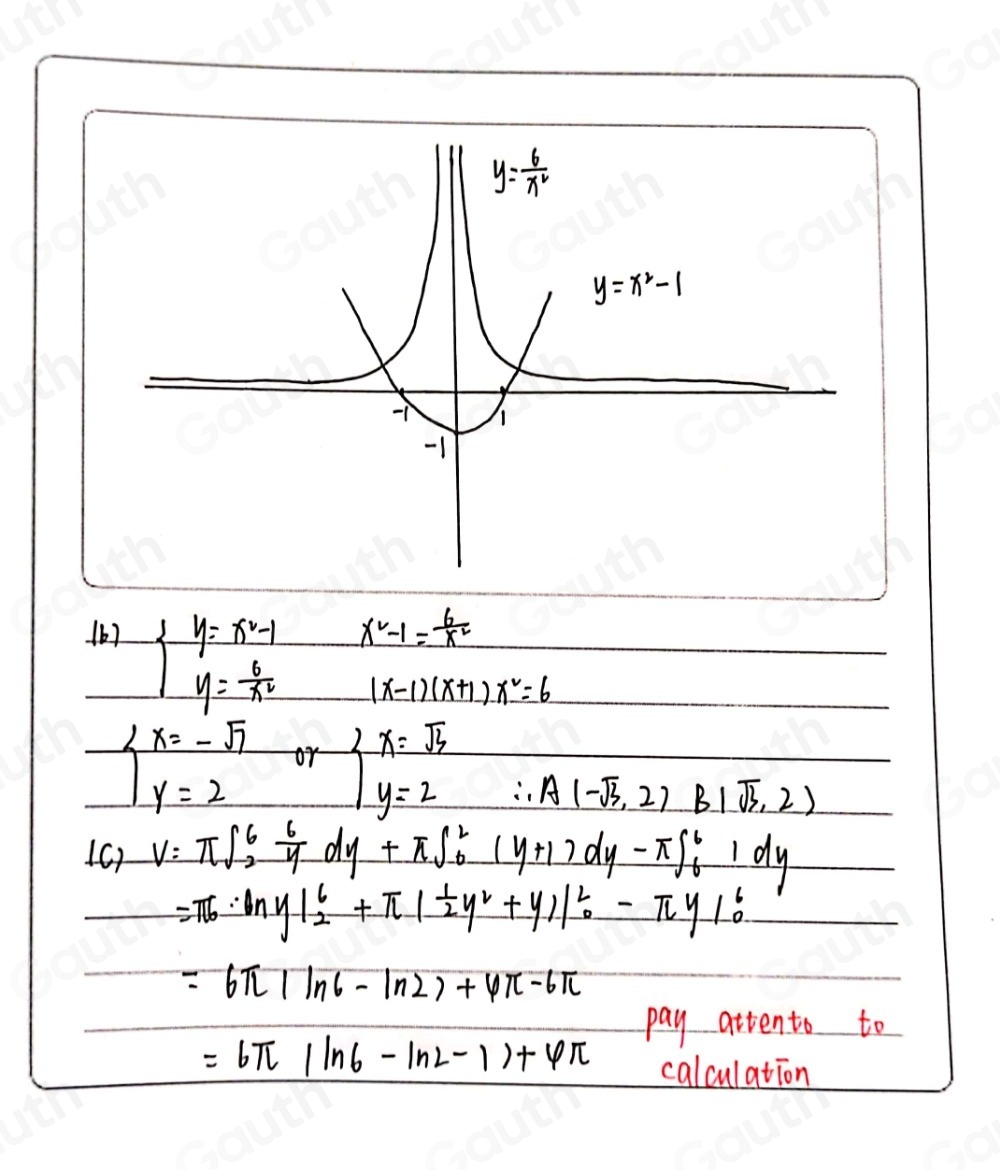 y=6/x²
y=x²-1
-1
1
-1
(b) { y=x²-1 x²-1=6/x²
y=6/x² (x-1)(x+1)x²=6
{ x=-√3 or { x=√3
y=2 y=2 ∴A(-√3,2) B(√3,2)
(c) V=π∫₂⁶ 6/y dy + π∫₀² (y+1)dy - π∫₀⁶ 1 dy
=π6·ln y|₂⁶ + π(½y²+y)|₀² - πy|₀⁶
= 6π(ln6-ln2)+4π-6π
= 6π(ln6-ln2-1)+4π
pay attento to
calculation
Gauth